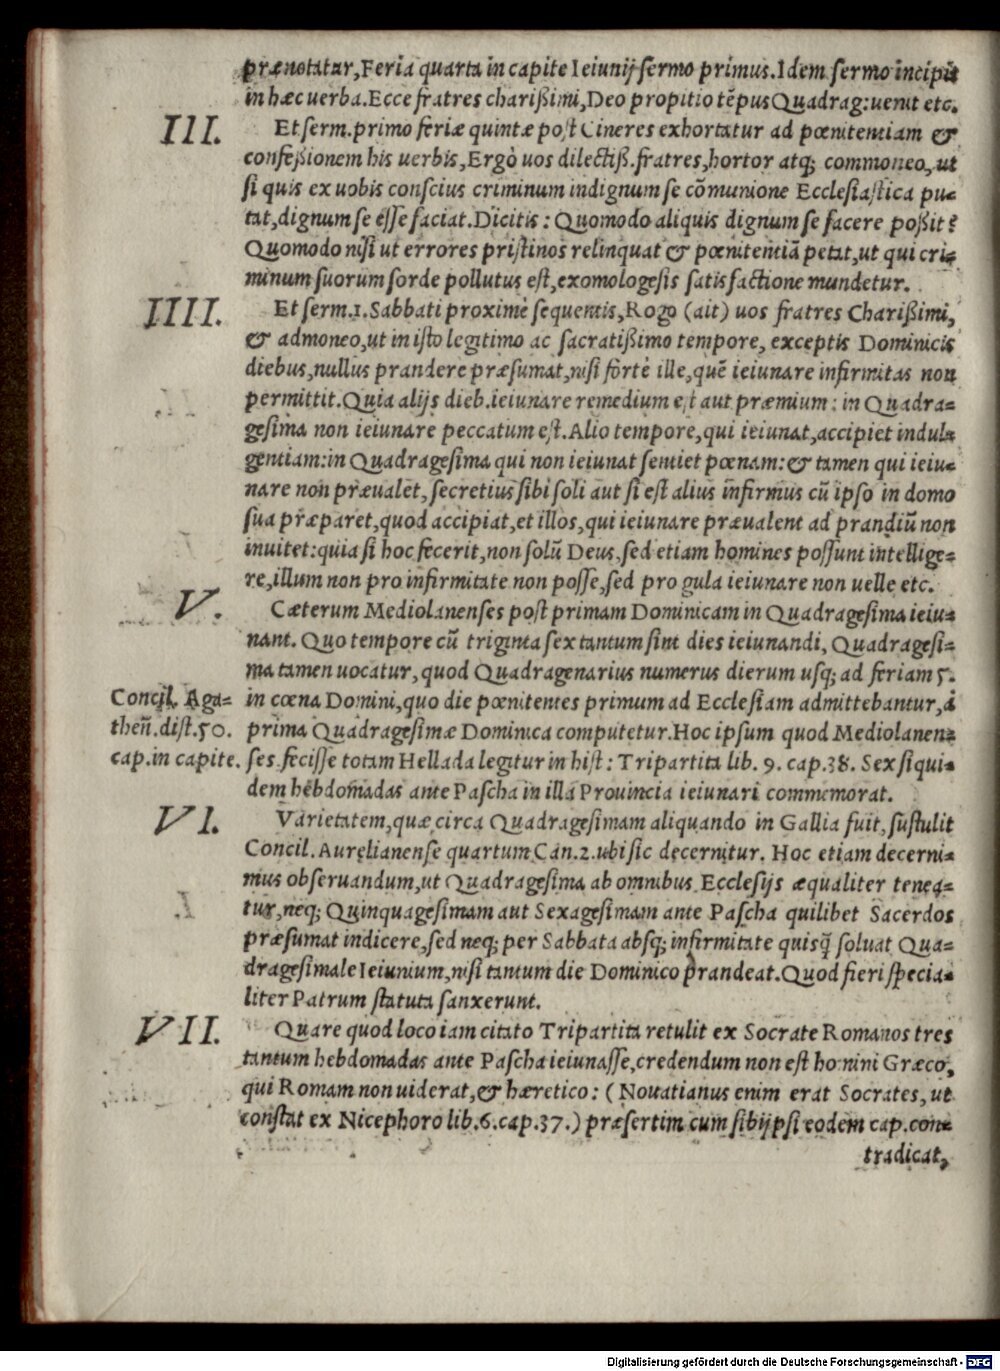 prænotatur,Feria quarta in capite Ieiunij sermo primus.Idem sermo incipit
in hæc uerba.Ecce fratres charißimi,Deo propitio tẽpus Quadrag:uenit etc.
III. Et serm.primo feriæ quintæ post Cineres exhortatur ad pœnitentiam &
confeßionem his uerbis,Ergò uos dilectiß.fratres,hortor atq; commoneo,ut
si quis ex uobis conscius criminum indignum se cõmunione Ecclesiastica pu-
tat,dignum se esse faciat.Dicitis: Quomodo aliquis dignum se facere poßit?
Quomodo nisi ut errores pristinos relinquat & pœnitentiã petat,ut qui cri-
minum suorum sorde pollutus est,exomologesis satisfactione mundetur.
IIII. Et serm.1.Sabbati proximè sequentis,Rogo (ait) uos fratres Charißimi,
& admoneo,ut in isto legitimo ac sacratißimo tempore, exceptis Dominicis
diebus,nullus prandere præsumat,nisi fortè ille,quẽ ieiunare infirmitas non
permittit.Quia alijs dieb.ieiunare remedium est aut præmium: in Quadra=
gesima non ieiunare peccatum est.Alio tempore,qui ieiunat,accipiet indul=
gentiam:in Quadragesima qui non ieiunat sentiet pœnam:& tamen qui ieiu=
nare non præualet,secretius sibi soli aut si est alius infirmus cũ ipso in domo
sua præparet,quod accipiat,et illos,qui ieiunare præualent ad prandiũ non
inuitet:quia si hoc fecerit,non solũ Deus,sed etiam homines possunt intellige=
re,illum non pro infirmitate non posse,sed pro gula ieiunare non uelle etc.
V. Cæterum Mediolanenses post primam Dominicam in Quadragesima ieiu=
nant. Quo tempore cũ triginta sex tantum sint dies ieiunandi, Quadragesi=
ma tamen uocatur, quod Quadragenarius numerus dierum usq; ad feriam 5.
in cœna Domini,quo die pœnitentes primum ad Ecclesiam admittebantur,à
prima Quadragesimæ Dominica computetur.Hoc ipsum quod Mediolanen=
ses fecisse totam Hellada legitur in hist: Tripartita lib. 9. cap.38. Sex siqui=
dem hebdomadas ante Pascha in illa Prouincia ieiunari commemorat.
Concil. Aga=
theñ.dist.50.
cap.in capite.
VI. Varietatem,quæ circa Quadragesimam aliquando in Gallia fuit,sustulit
Concil.Aurelianense quartum Can.2.ubi sic decernitur. Hoc etiam decerni=
mus obseruandum,ut Quadragesima ab omnibus Ecclesijs æqualiter tenea=
tur,neq; Quinquagesimam aut Sexagesimam ante Pascha quilibet Sacerdos
præsumat indicere,sed neq; per Sabbata absq; infirmitate quisq̃ soluat Qua=
dragesimale Ieiunium,nisi tantum die Dominico prandeat.Quod fieri specia=
liter Patrum statuta sanxerunt.
VII. Quare quod loco iam citato Tripartita retulit ex Socrate Romanos tres
tantum hebdomadas ante Pascha ieiunasse,credendum non est homini Græco,
qui Romam non uiderat,& hæretico: (Nouatianus enim erat Socrates, ut
constat ex Nicephoro lib.6.cap.37.) præsertim cum sibijpsi eodem cap.con=
tradicat,
Digitalisierung gefördert durch die Deutsche Forschungsgemeinschaft - DFG